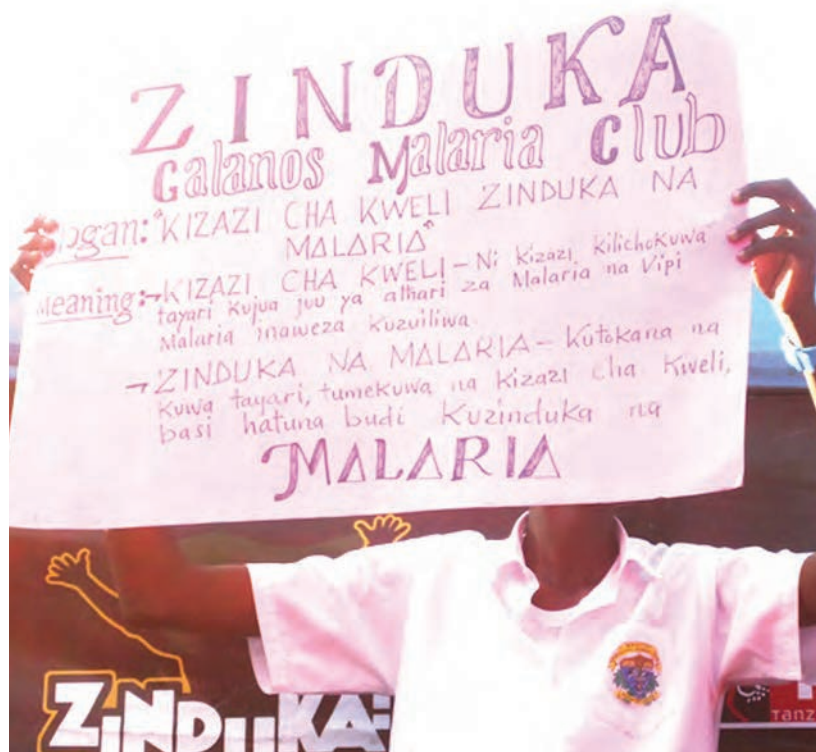 ZINDUKA
Galanos Malaria Club
Slogan: "KIZAZI CHA KWELI ZINDUKA NA
MALARIA"
Meaning:→KIZAZI CHA KWELI – Ni Kizazi Kilichokuwa
tayari Kujua juu ya athari za Malaria na Vipi
Malaria inaweza Kuzuiliwa.
→ZINDUKA NA MALARIA – Kutokana na
Kuwa tayari, tumekuwa na Kizazi cha Kweli,
basi hatuna budi Kuzinduka na
MALARIA
ZINDUKA: